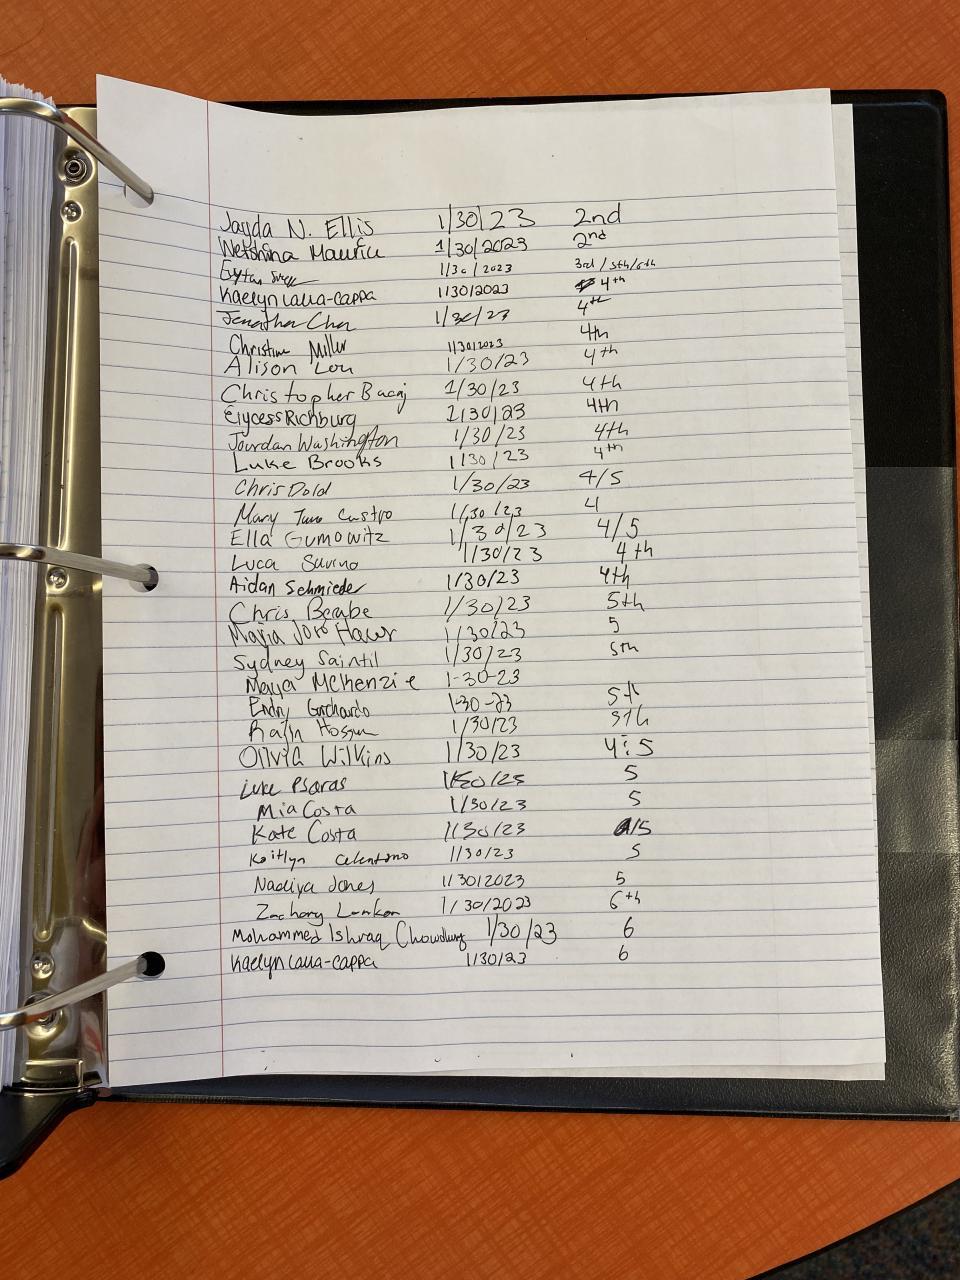 Jayda N. Ellis 1/30/23 2nd
Maurice 1/30/2023 2nd
1/30/2023 3rd/5th/6th
Kaelyn 1/30/2023 4th
1/30/23 4th
Christine Miller 1/30/2023 4th
Alison Lou 1/30/23 4th
Christopher 1/30/23 4th
Richburg 1/30/23 4th
Jourdan Washington 1/30/23 4th
Luke Brooks 1/30/23 4th
Chris Dold 1/30/23 4/5
Mary Castro 1/30/23 4
Ella Gumowitz 1/30/23 4/5
Luca Savino 1/30/23 4th
Aidan Schmieder 1/30/23 4th
Chris Beabe 1/30/23 5th
Maria 1/30/23 5
Sydney Saintil 1/30/23 5th
Maya McKenzie 1-30-23
1-30-23 5th
1/30/23 5th
Olivia Wilkins 1/30/23 4:5
Luke Psaras 5
Mia Costa 1/30/23 5
Kate Costa 1/30/23 /5
Kaitlyn Celentano 1/30/23 5
Nadiya Jones 1/30/2023 5
Zachary 1/30/2023 6th
Mohammed Ishraq Chowdhury 1/30/23 6
Kaelyn 1/30/23 6